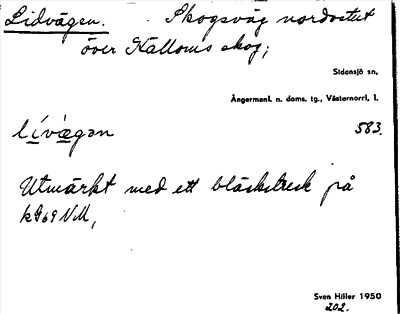 Lidvägen. Skogsväg nordostut
över Källoms skog;
Sidensjö sn,
Ångermanl. n. doms. tg., Västernorrl. l.
lívæ̀gən 583.
Utmärkt med ett bläckstreck på
kt 69 NV,
Sven Hiller 1950
202.